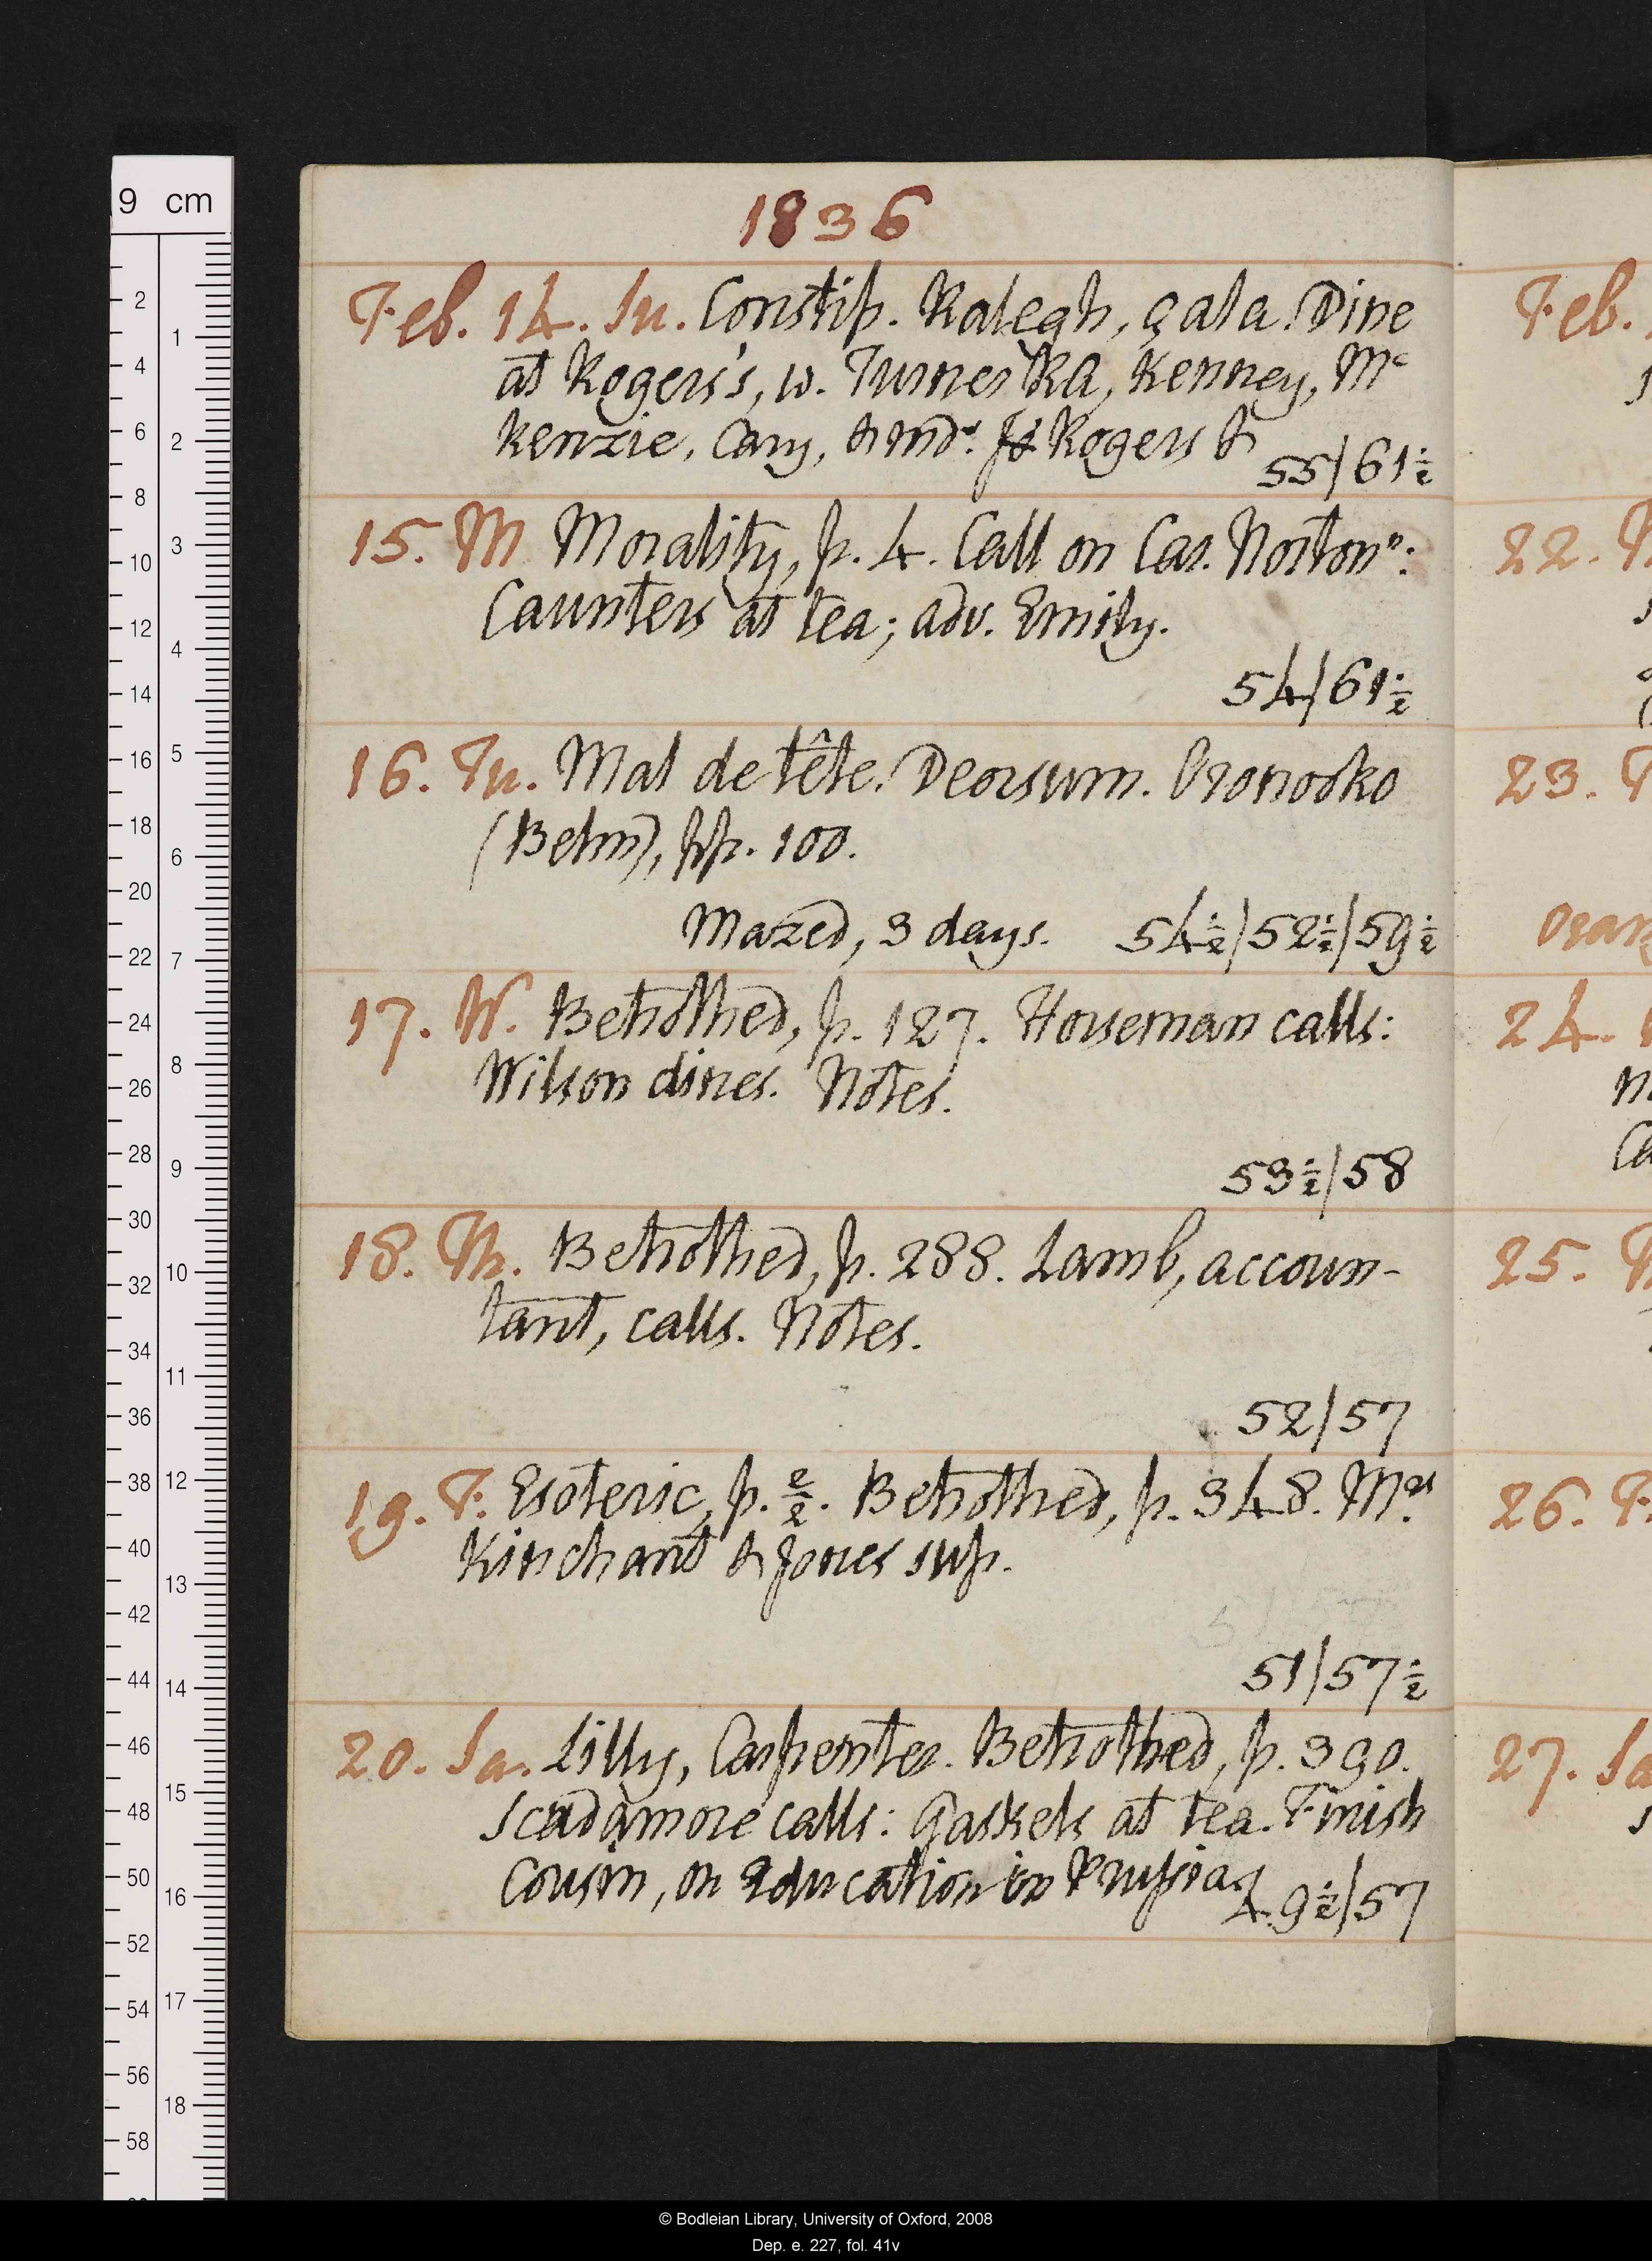 9 cm
1836
Feb. 14. Su. Constip. Ralegh, gala. Dine
at Rogers's, w. Turner RA, Kenney, Mc
kenzie, Cary, & Rogers &
55/61½
15. M Morality, p. 4. Call on Car. Nortonn:
Caunters at tea; adv. Emily.
54/61½
16. Tu. Mal de tête. Deorsum. Oronooko
(Behn), pp. 100.
Mazed, 3 days. 54½/52½/59½
17. W. Betrothed, p. 127. Horseman calls:
Wilson dines. Notes.
53½/58
18. Th. Betrothed, p. 288. Lamb, accoun-
tant, calls. Notes.
52/57
19. F. Esoteric, p. 2/2. Betrothed, p. 348. Mrs
Kinchant & Jones sup.
51/57½
20. Sa. Lilly, Carpenter. Betrothed, p. 390.
Scudamore calls: Gaskels at tea. Finish
Cousin, on Education in Prussia
49½/57
Feb.
22.
23.
24.
25.
26. F.
27. Sa
© Bodleian Library, University of Oxford, 2008
Dep. e. 227, fol. 41v